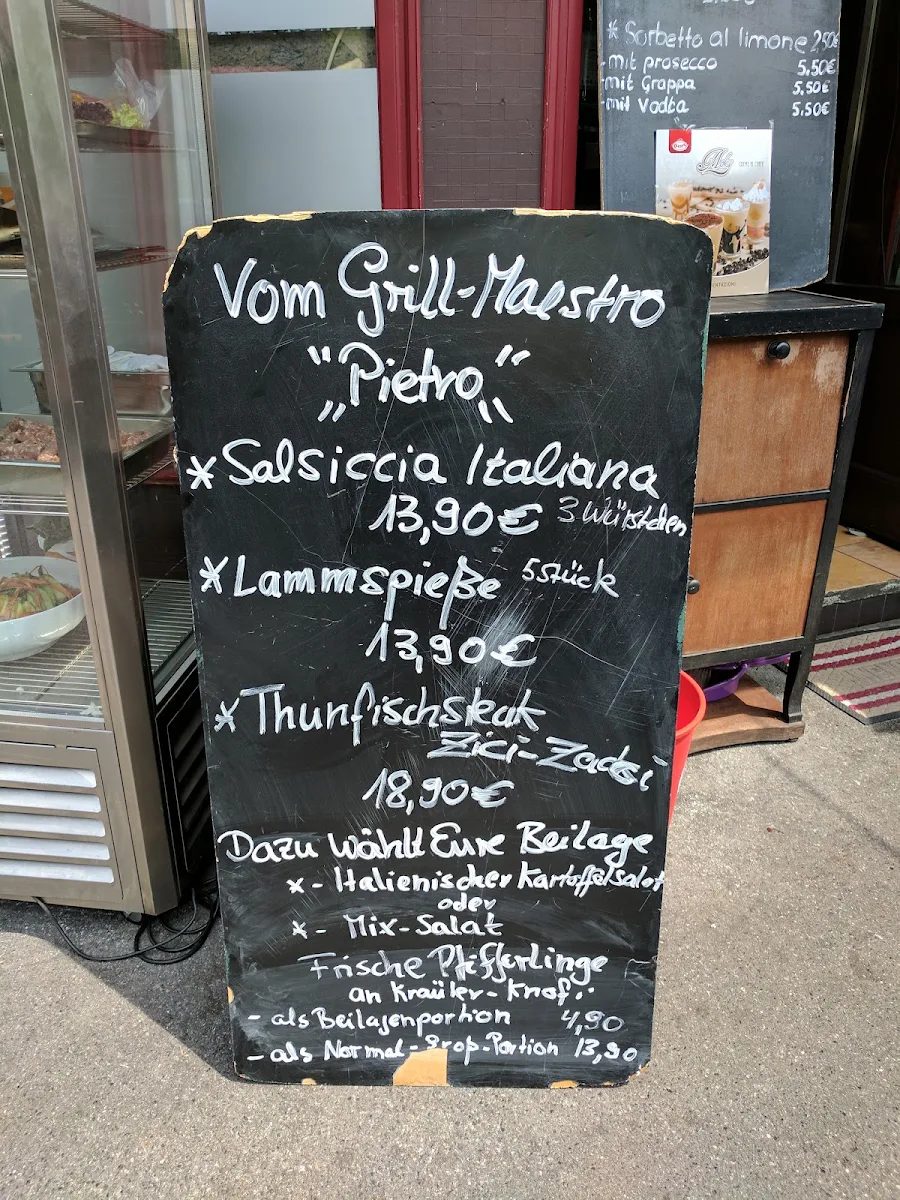 * Sorbetto al limone 2,50€
-mit prosecco 5,50€
-mit Grappa 5,50€
-mit Vodka 5,50€
Vom Grill-Maestro
"Pietro"
* Salsiccia Italiana
13,90€ 3 Würstchen
* Lammspieße 5 Stück
13,90€
* Thunfischsteak
Zici-Zacki
18,90€
Dazu wählt Eure Beilage
x - Italienischer Kartoffelsalat
oder
x - Mix-Salat
Frische Pfifferlinge
an Kräuter-Knof..
- als Beilagenportion 4,90
- als Normal-Grop-Portion 13,90